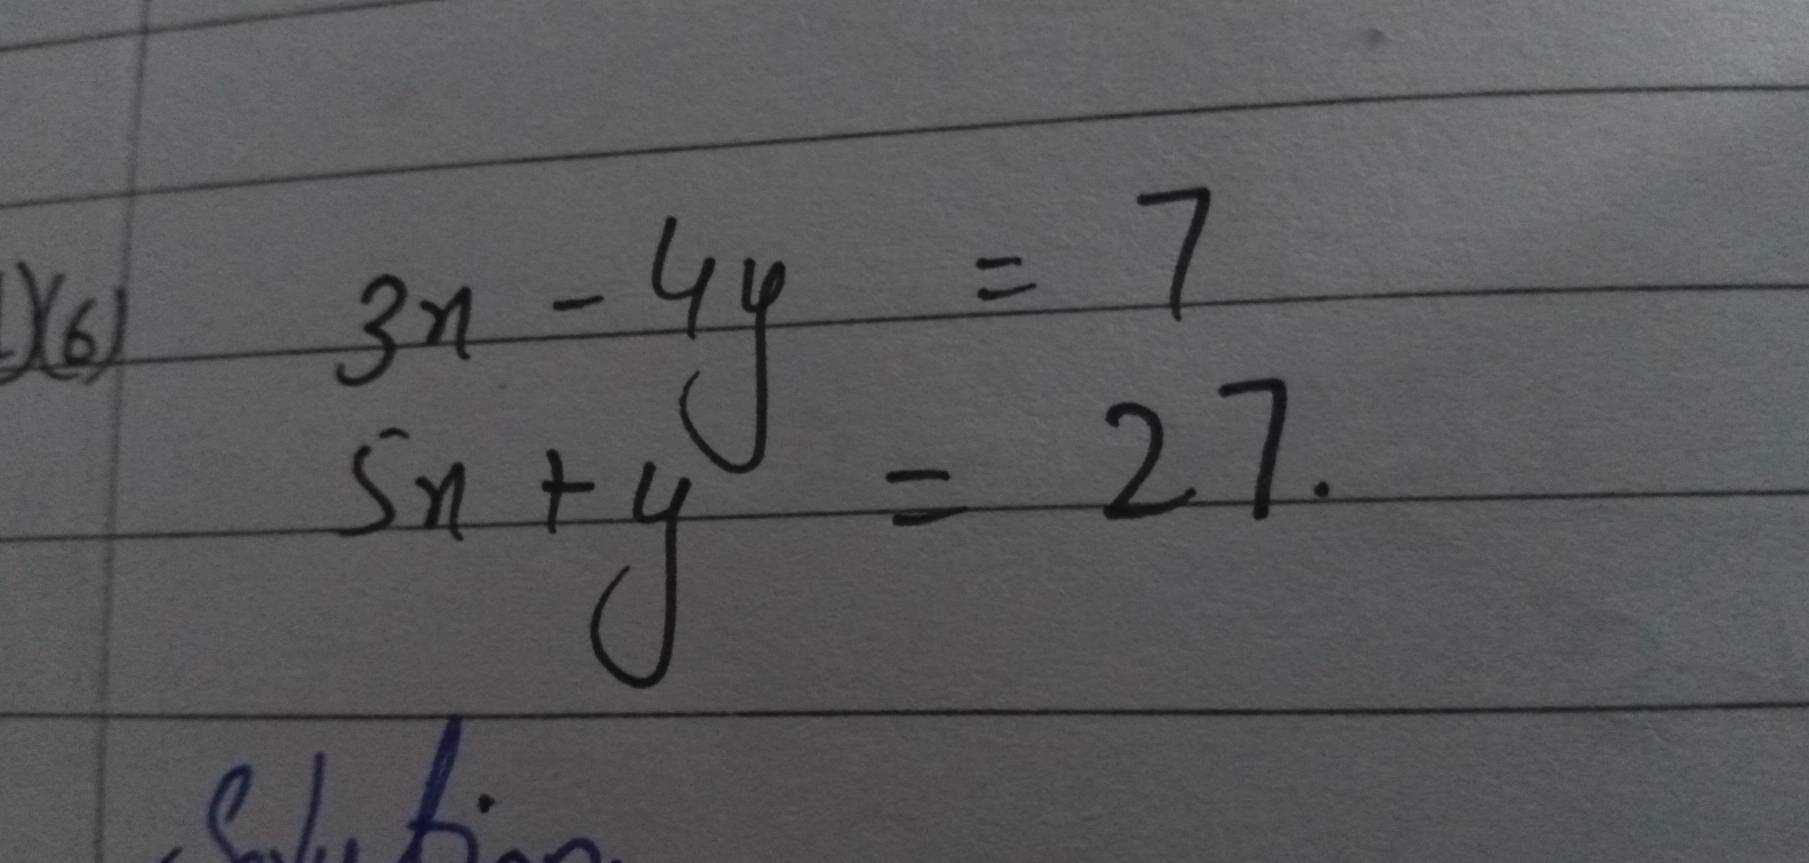 (6) 3x - 4y = 7
5x + y = 27.
Solution